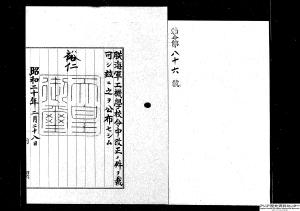 勅令第八十六號
朕海軍工機學校令中改正ノ件ヲ裁
可シ玆ニ之ヲ公布セシム
裕仁
天皇御璽
昭和二十年二月二十八日